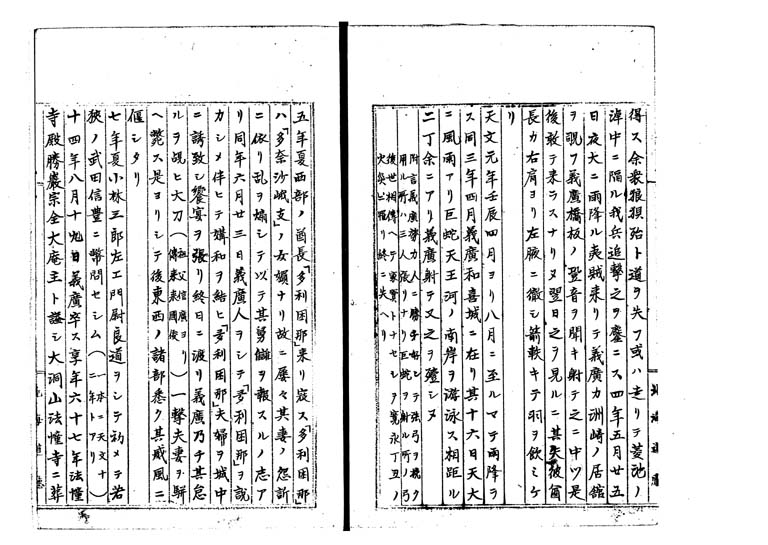 得ス余衆狼狽殆ト道ヲ失フ或ハ走リテ菱池ノ
淖中ニ陥ル我兵追撃之ヲ鏖ニス四年五月廿五
日夜大ニ雨降ル夷賊来リテ義廣カ洲崎ノ居館
ヲ覗フ義廣橋板ノ跫音ヲ聞キ射テ之ニ中ツ是
後敢テ来ラスナリヌ翌日之ヲ見ルニ其矢彼酋
長カ右肩ヨリ左腋ニ徹シ箭軟キテ羽ヲ飲ミケ
リ
天文元年壬辰四月ヨリ八月ニ至ルマテ雨降ラ
ス同三年四月義廣和喜城ニ在リ其十六日天大
ニ風雨アリ巨蛇天王河ノ南岸ヲ游泳ス相距ル
二丁余ニアリ義廣射テ又之ヲ殪シヌ
附言義廣膂力人ニ勝テ好シテ強弓ヲ挽ク
用ル所ハ三人張リナリ巨蛇ヲ射ル所ノ弓
後世相傳ヘテ家寶トナセシヲ寛永丁丑ノ
火災ニ罹リ終ニ失ヘリ
五年夏西部ノ酋長「多利困那」来リ寇ス「多利困那」
ハ「多奈沙岐支」ノ女婿ナリ故ニ屢々其妻ノ怨訴
ニ依リ乱ヲ煽シテ以テ其舅讎ヲ報スルノ志ア
リ同年六月廿三日義廣人ヲシテ「多利困那」ヲ説
カシメ佯ヒテ媾和ヲ結ヒ「多利困那」夫婦ヲ城中
ニ誘致シ饗宴ヲ張リ終日ニ渡リ義廣乃チ其怠
ルヲ覘ヒ大刀(祖父信廣ヨリ傳来来國俊)一撃夫妻ヲ駢
ヘ斃ス是ヨリシテ後東西ノ諸部悉ク其威風ニ
偃シタリ
七年夏小林三郎左エ門尉良道ヲシテ初メテ若
狭ノ武田信豊ニ幣問セシム(一本ニ天文十二年トアリ)
十四年八月十九日義廣卒ス享年六十七年法幢
寺殿勝巖宗全大庵主ト諡シ大洞山法幢寺ニ葬